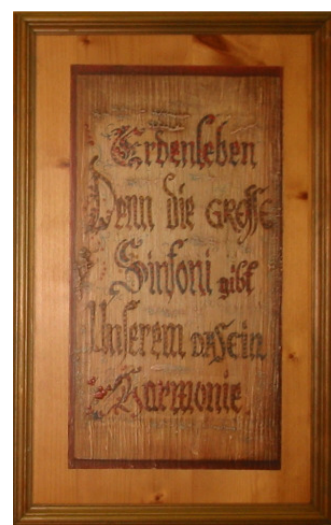 Erdenleben
Denn die GROSSE
Sinfoni gibt
Unserem DASEin
Harmonie.